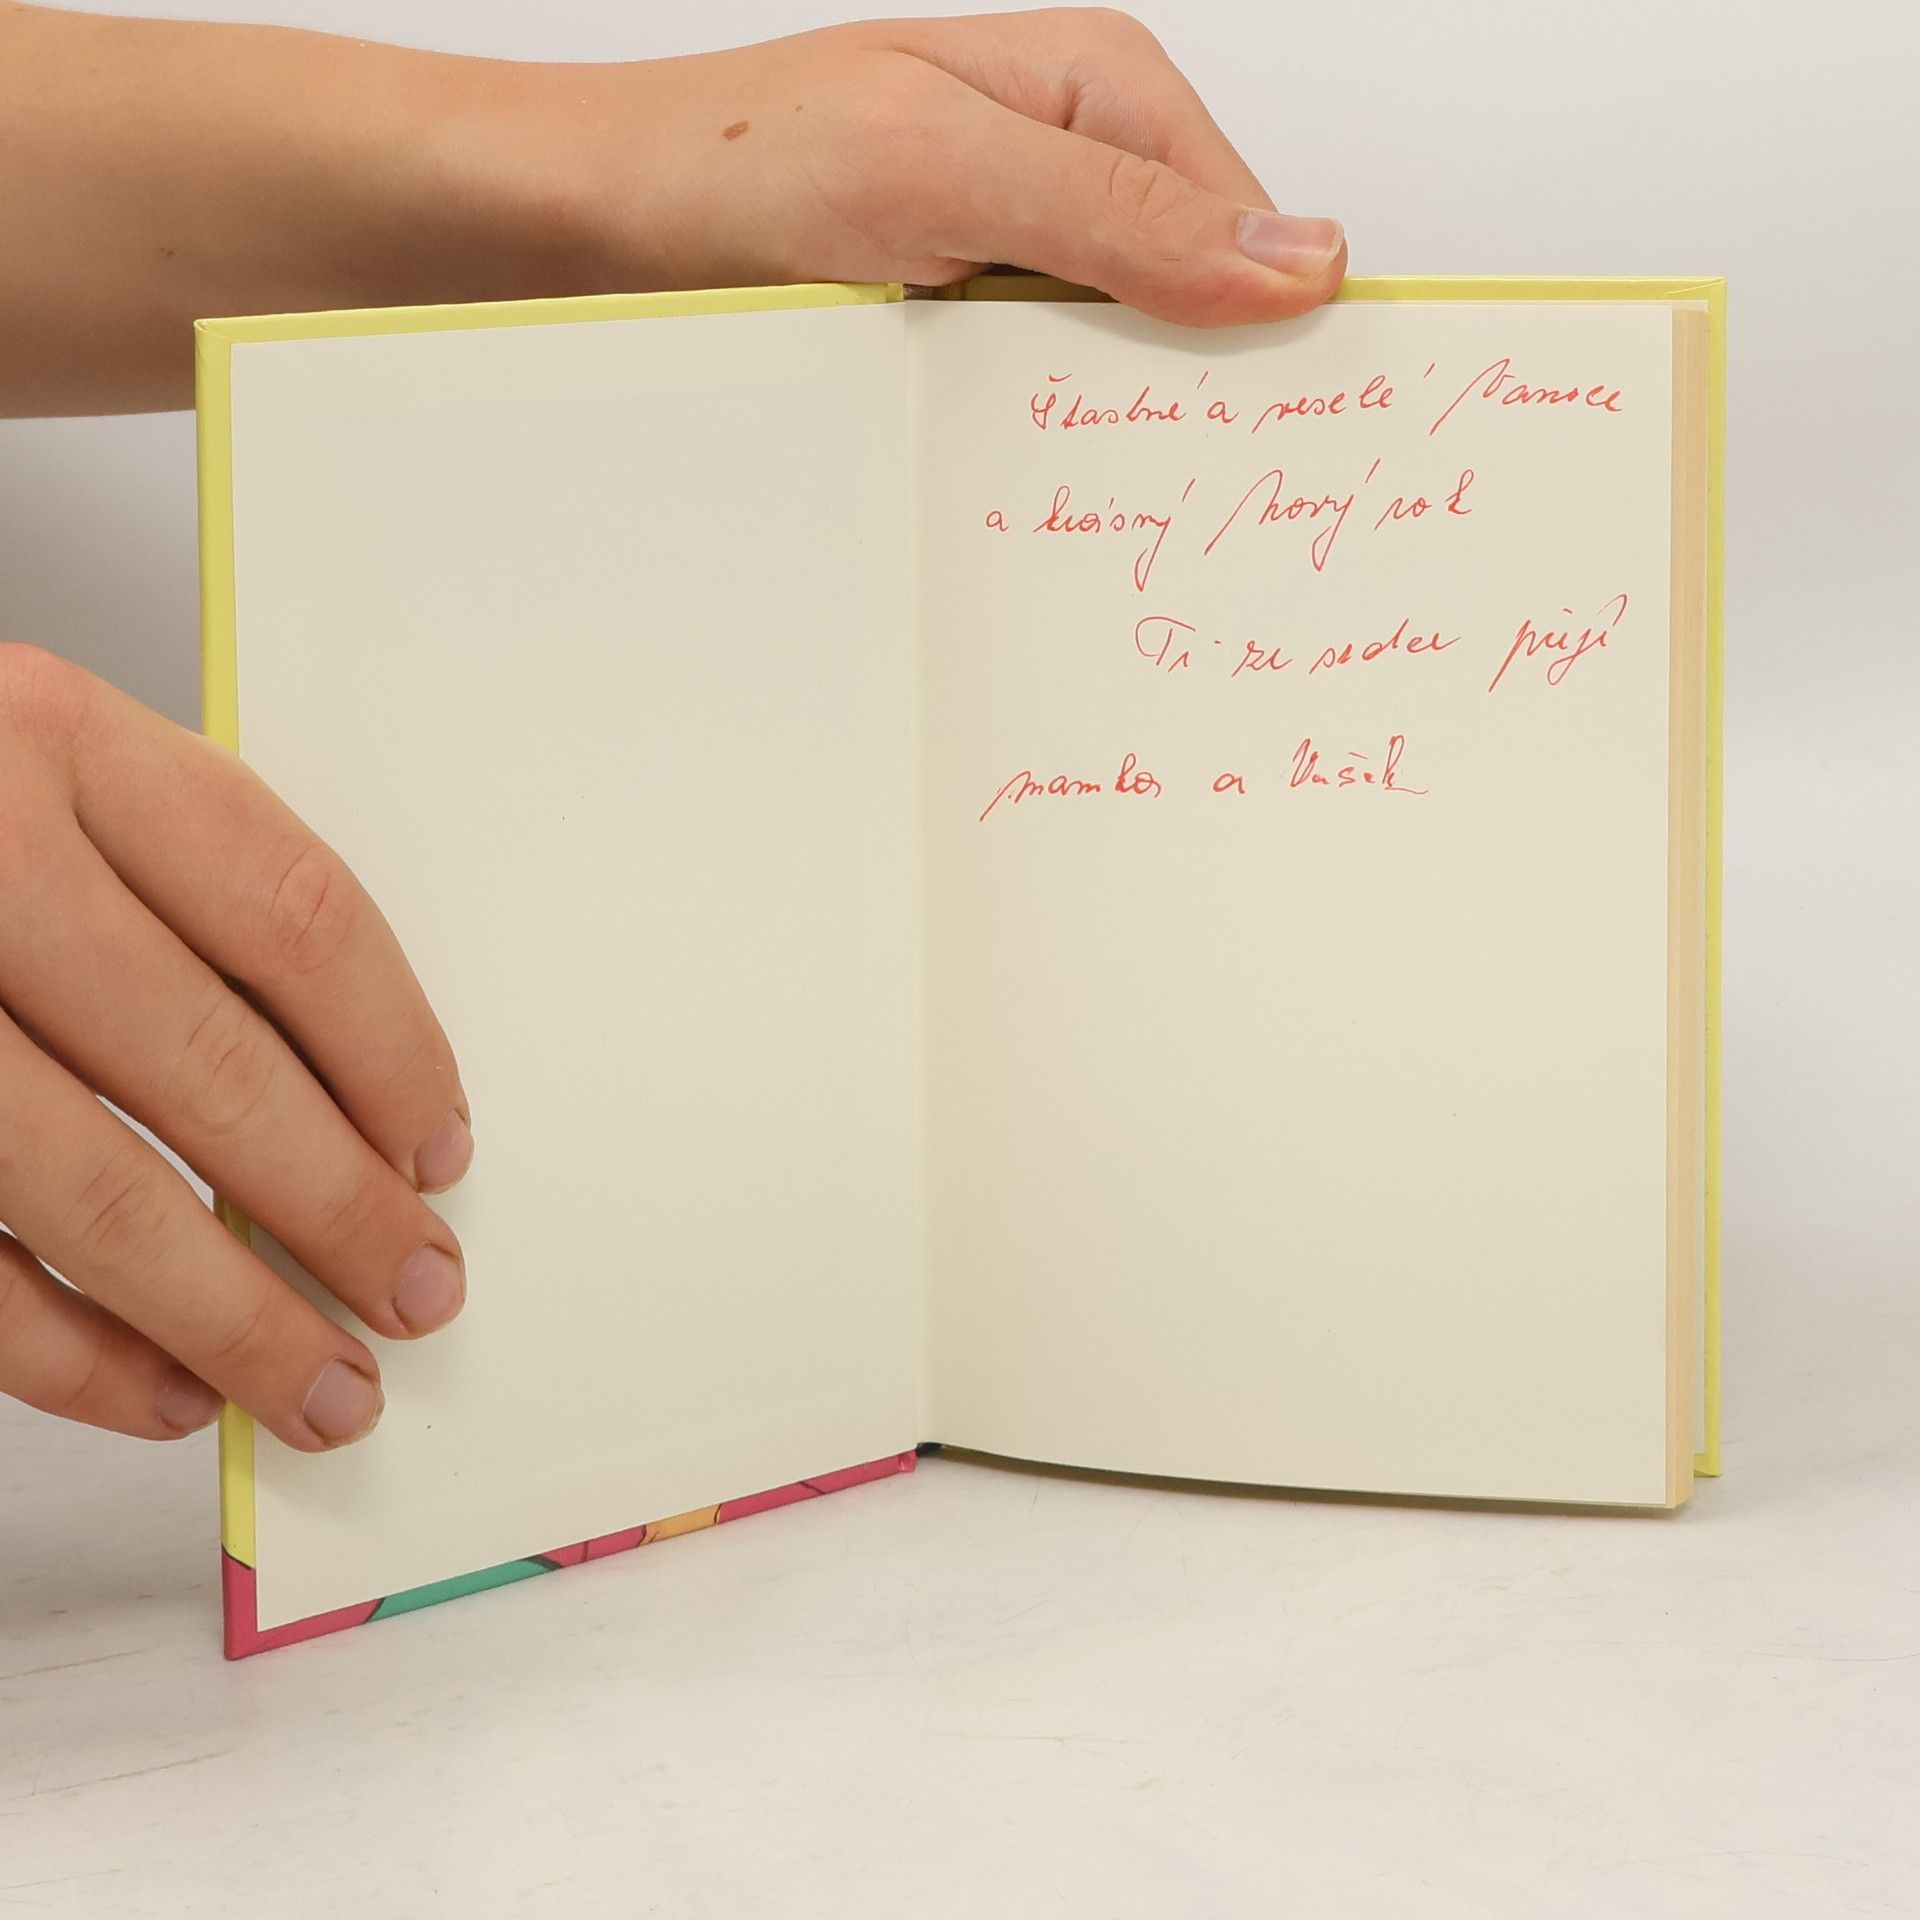 Šťastné a veselé Vánoce
a krásný Nový rok
Ti ze srdce přejí
mamka a Vašek